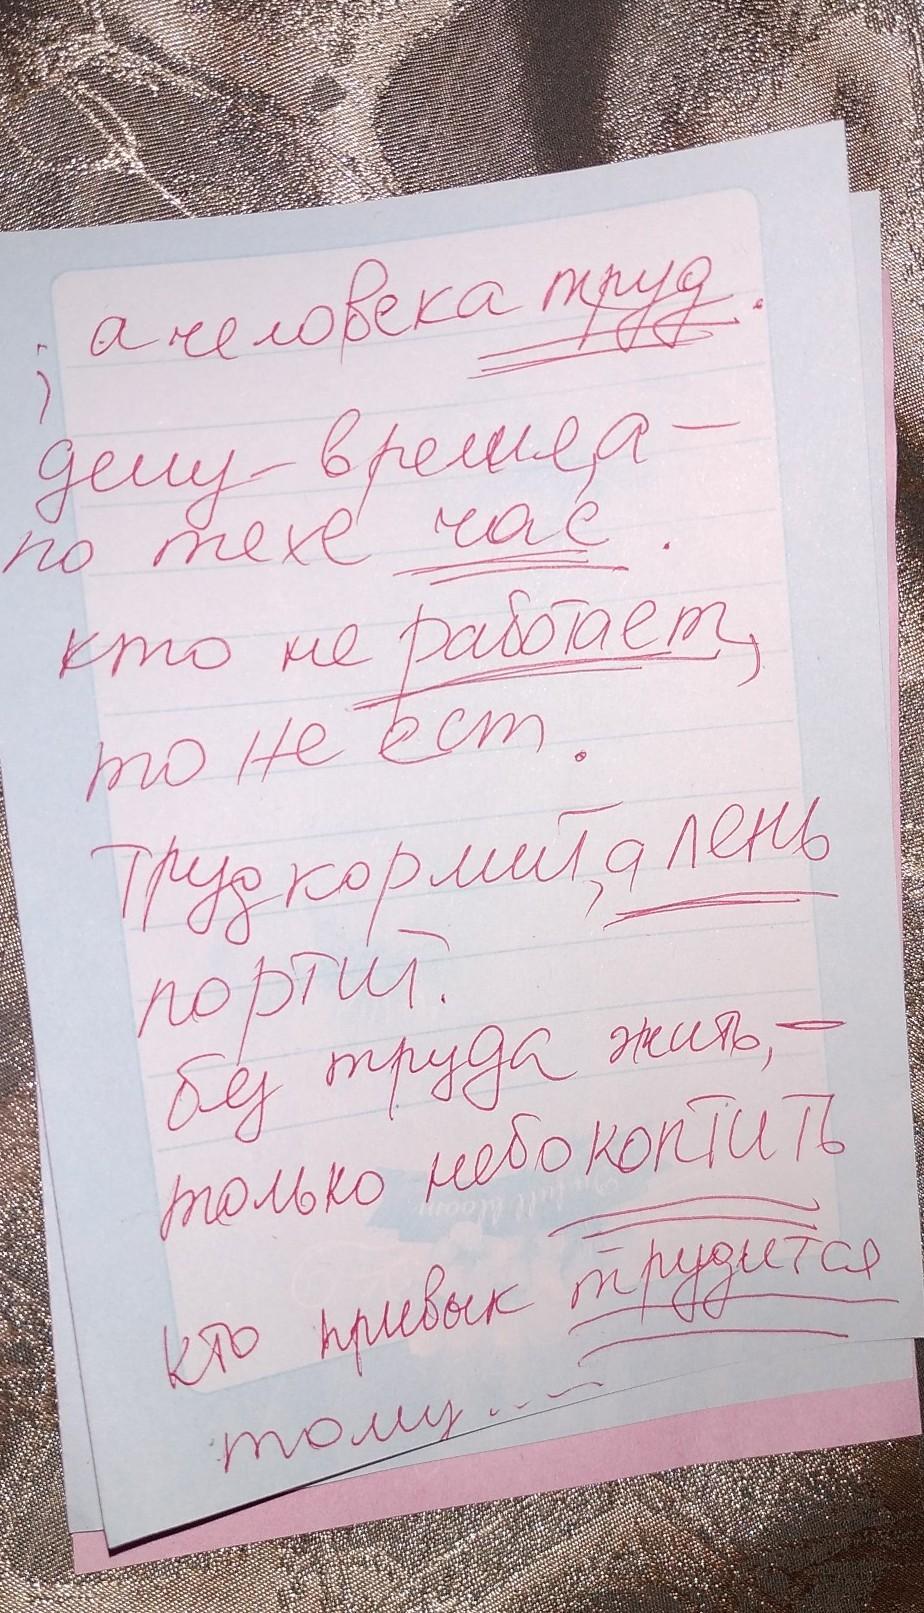 ; а человека труд.
делу - время, а -
по техе час.
кто не работает,
то не ест.
Труд кормит, а лень
портит.
без труда жить, -
только небо коптить
кто привык трудится
тому...--
In full bloom